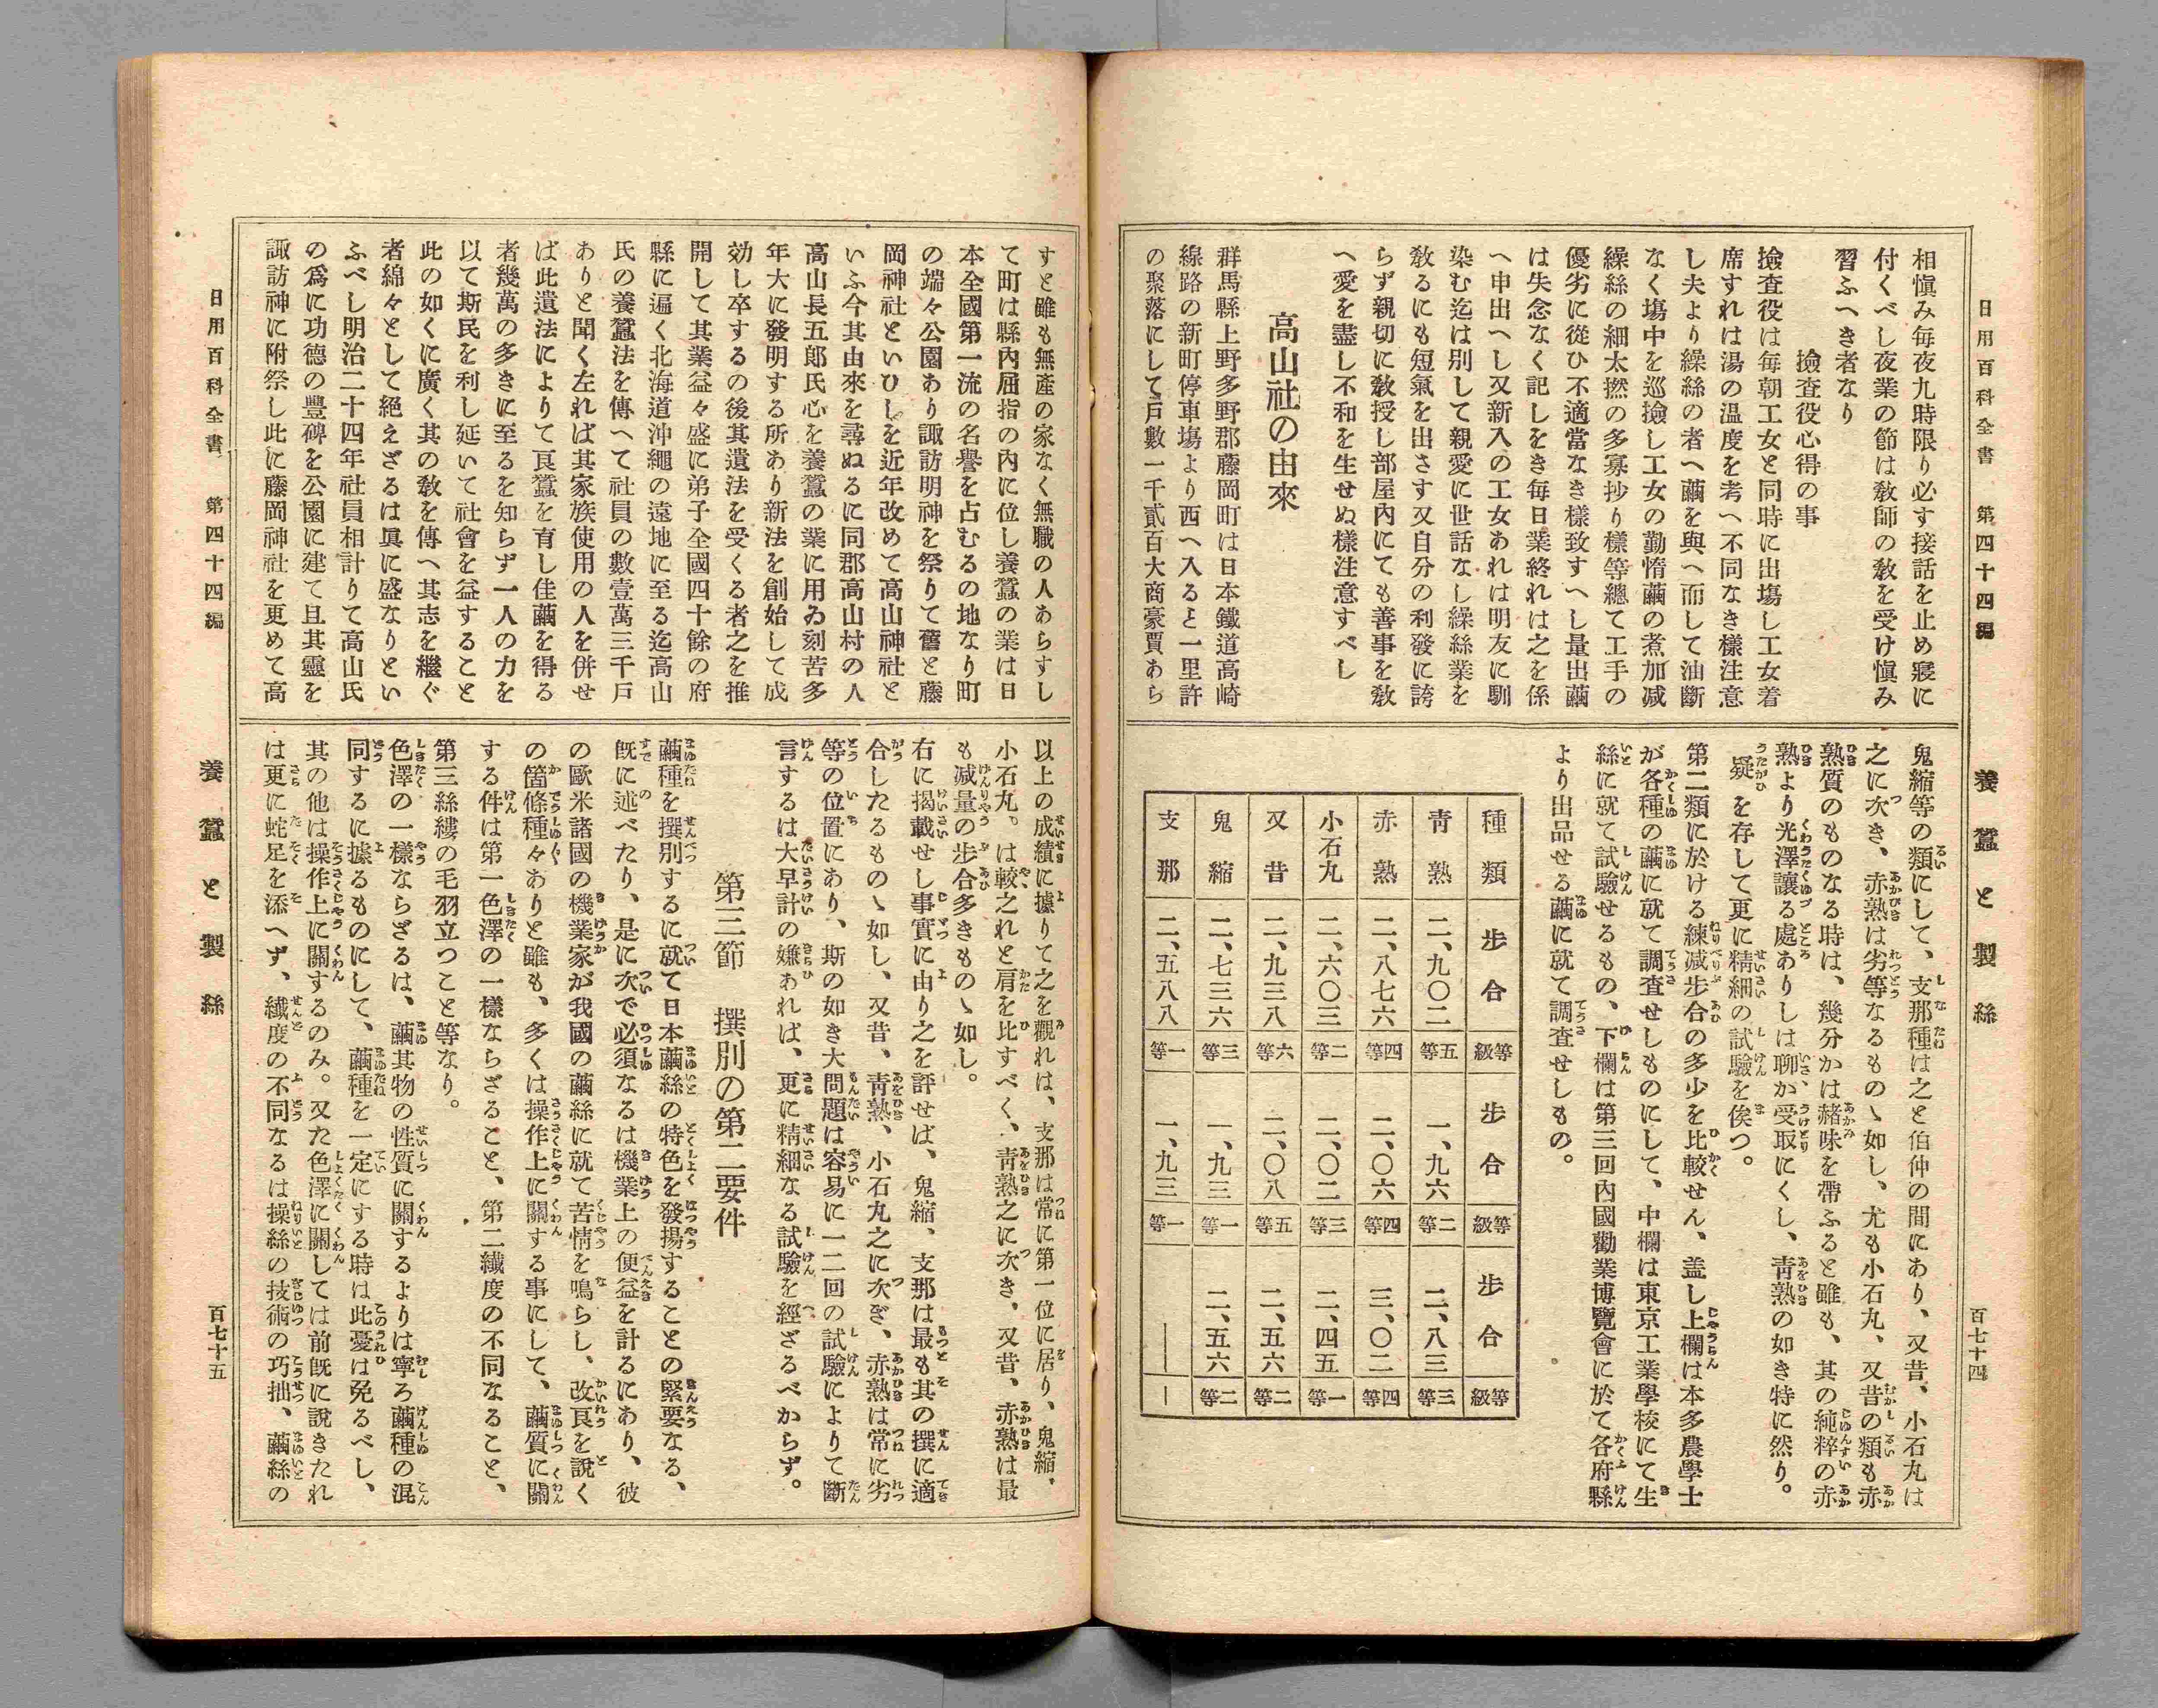 日用百科全書 第四十四編 養蠶と製絲 百七十四
相愼み毎夜九時限り必す接話を止め寢に
付くべし夜業の節は敎師の敎を受け愼み
習ふへき者なり
撿査役心得の事
撿査役は毎朝工女と同時に出塲し工女着
席すれは湯の温度を考へ不同なき樣注意
し夫より繰絲の者へ繭を與へ而して油斷
なく塲中を巡撿し工女の勤惰繭の煮加减
繰絲の細太撚の多寡抄り樣等總て工手の
優劣に從ひ不適當なき樣致すへし量出繭
は失念なく記しをき毎日業終れは之を係
へ申出へし又新入の工女あれは明友に馴
染む迄は別して親愛に世話なし繰絲業を
敎るにも短氣を出さす又自分の利發に誇
らず親切に敎授し部屋內にても善事を敎
へ愛を盡し不和を生せぬ樣注意すべし
高山社の由來
群馬縣上野多野郡藤岡町は日本鐵道高崎
線路の新町停車塲より西へ入ると一里許
の聚落にして戸數一千貳百大商豪賈あら
鬼縮等の類にして、支那種は之と伯仲の間にあり、又昔、小石丸は
之に次き、赤熟は劣等なるものヽ如し、尤も小石丸、又昔の類も赤
熟質のものなる時は、幾分かは赭味を帶ふると雖も、其の純粹の赤
熟より光澤讓る處ありしは聊か受取にくし、靑熟の如き特に然り。
疑を存して更に精細の試驗を俟つ。
第二類に於ける練减步合の多少を比較せん、盖し上欄は本多農學士
が各種の繭に就て調査せしものにして、中欄は東京工業學校にて生
絲に就て試驗せるもの、下欄は第三回內國勸業博覽會に於て各府縣
より出品せる繭に就て調査せしもの。
種類 步合 等級 步合 等級 步合 等級
靑熟 二、九〇二 五等 一、九六 二等 二、八三 三等
赤熟 二、八七六 四等 二、〇六 四等 三、〇二 四等
小石丸 二、六〇三 二等 二、〇二 三等 二、四五 一等
又昔 二、九三八 六等 二、〇八 五等 二、五六 二等
鬼縮 二、七三六 三等 一、九三 一等 二、五六 二等
支那 二、五八八 一等 一、九三 一等 ―― ―
すと雖も無產の家なく無職の人あらすし
て町は縣內屈指の內に位し養蠶の業は日
本全國第一流の名譽を占むるの地なり町
の端々公園あり諏訪明神を祭りて舊と藤
岡神社といひしを近年改めて高山神社と
いふ今其由來を尋ぬるに同郡高山村の人
高山長五郎氏心を養蠶の業に用ゐ刻苦多
年大に發明する所あり新法を創始して成
効し卒するの後其遺法を受くる者之を推
開して其業益々盛に弟子全國四十餘の府
縣に遍く北海道沖繩の遠地に至る迄高山
氏の養蠶法を傳へて社員の數壹萬三千戸
ありと聞く左れば其家族使用の人を併せ
ば此遺法によりて良蠶を育し佳繭を得る
者幾萬の多きに至るを知らず一人の力を
以て斯民を利し延いて社會を益すること
此の如くに廣く其の敎を傳へ其志を繼ぐ
者綿々として絕えざるは眞に盛なりとい
ふべし明治二十四年社員相計りて高山氏
の爲に功德の豐碑を公園に建て且其靈を
諏訪神に附祭し此に藤岡神社を更めて高
以上の成績に據りて之を觀れは、支那は常に第一位に居り、鬼縮、
小石丸。は較之れと肩を比すべく、靑熟之に次き、又昔、赤熟は最
も减量の步合多きものヽ如し。
右に揭載せし事實に由り之を評せば、鬼縮、支那は最も其の撰に適
合したるものヽ如し、又昔、靑熟、小石丸之に次ぎ、赤熟は常に劣
等の位置にあり、斯の如き大問題は容易に一二回の試驗によりて斷
言するは大早計の嫌あれば、更に精細なる試驗を經ざるべからず。
第三節 撰別の第二要件
繭種を撰別するに就て日本繭絲の特色を發揚することの緊要なる、
旣に述べたり、是に次で必須なるは機業上の便益を計るにあり、彼
の歐米諸國の機業家が我國の繭絲に就て苦情を鳴らし、改良を說く
の箇條種々ありと雖も、多くは操作上に關する事にして、繭質に關
する件は第一色澤の一樣ならざること、第二纎度の不同なること、
第三絲縷の毛羽立つこと等なり。
色澤の一樣ならざるは、繭其物の性質に關するよりは寧ろ繭種の混
同するに據るものにして、繭種を一定にする時は此憂は免るべし、
其の他は操作上に關するのみ。又た色澤に關しては前旣に說きたれ
は更に蛇足を添へず、纎度の不同なるは操絲の技術の巧拙、繭絲の
日用百科全書 第四十四編 養蠶と製絲 百七十五